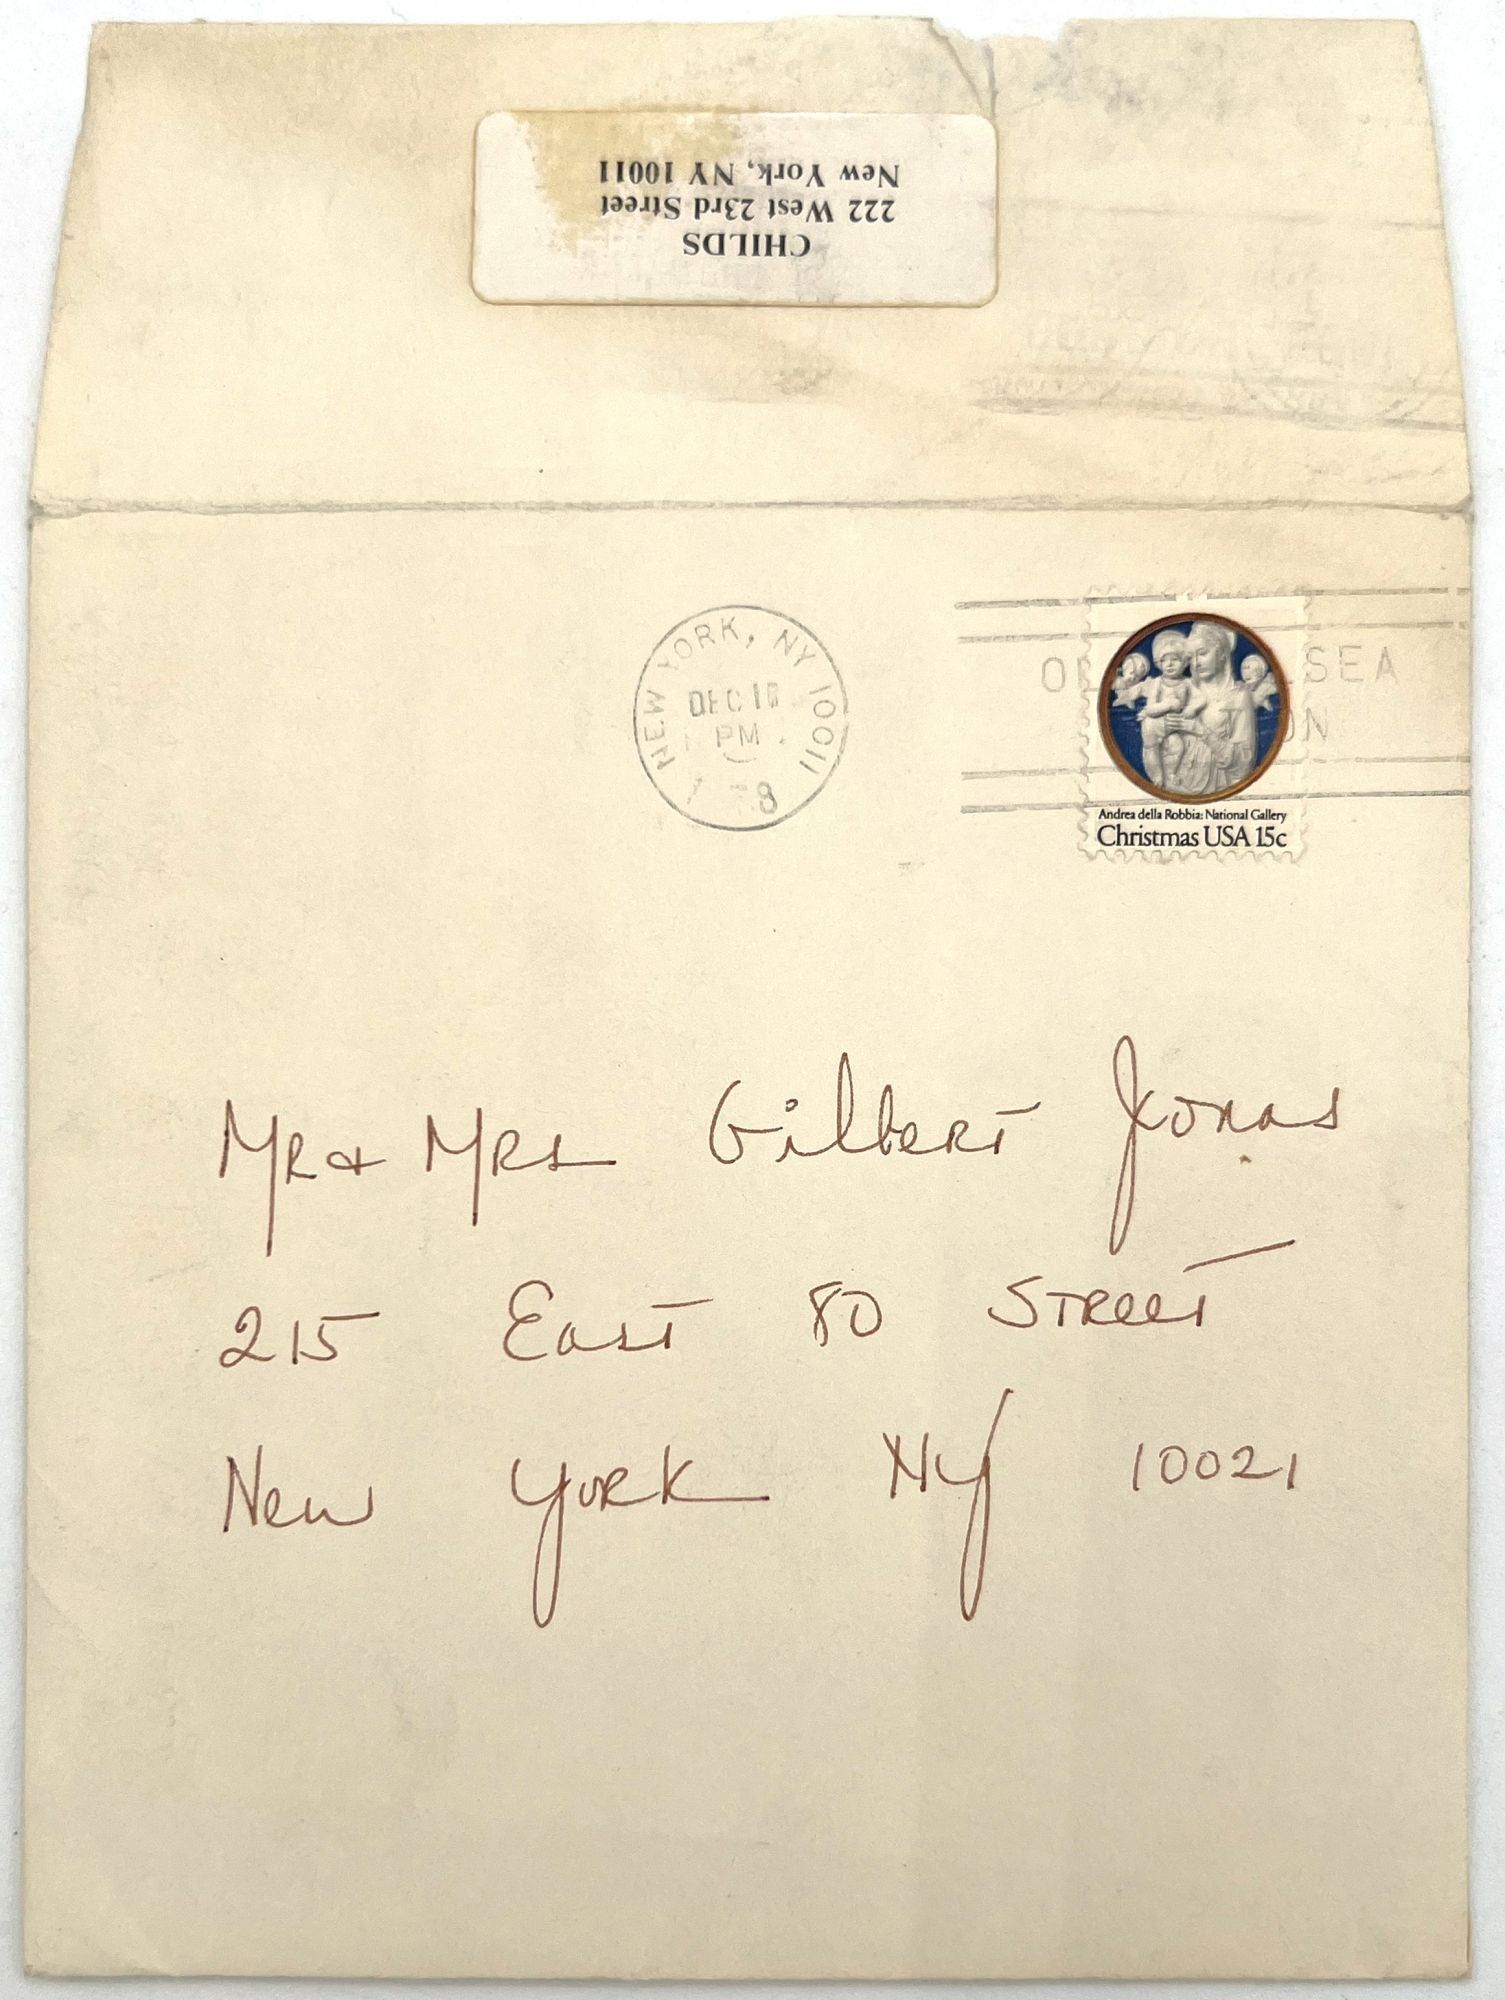 CHILDS
222 West 23rd Street
New York, NY 10011
NEW YORK, NY 10011
PM
Andrea della Robbia: National Gallery
Christmas USA 15c
Mr & Mrs Gilbert Jonas
215 East 80 Street
New York NY 10021